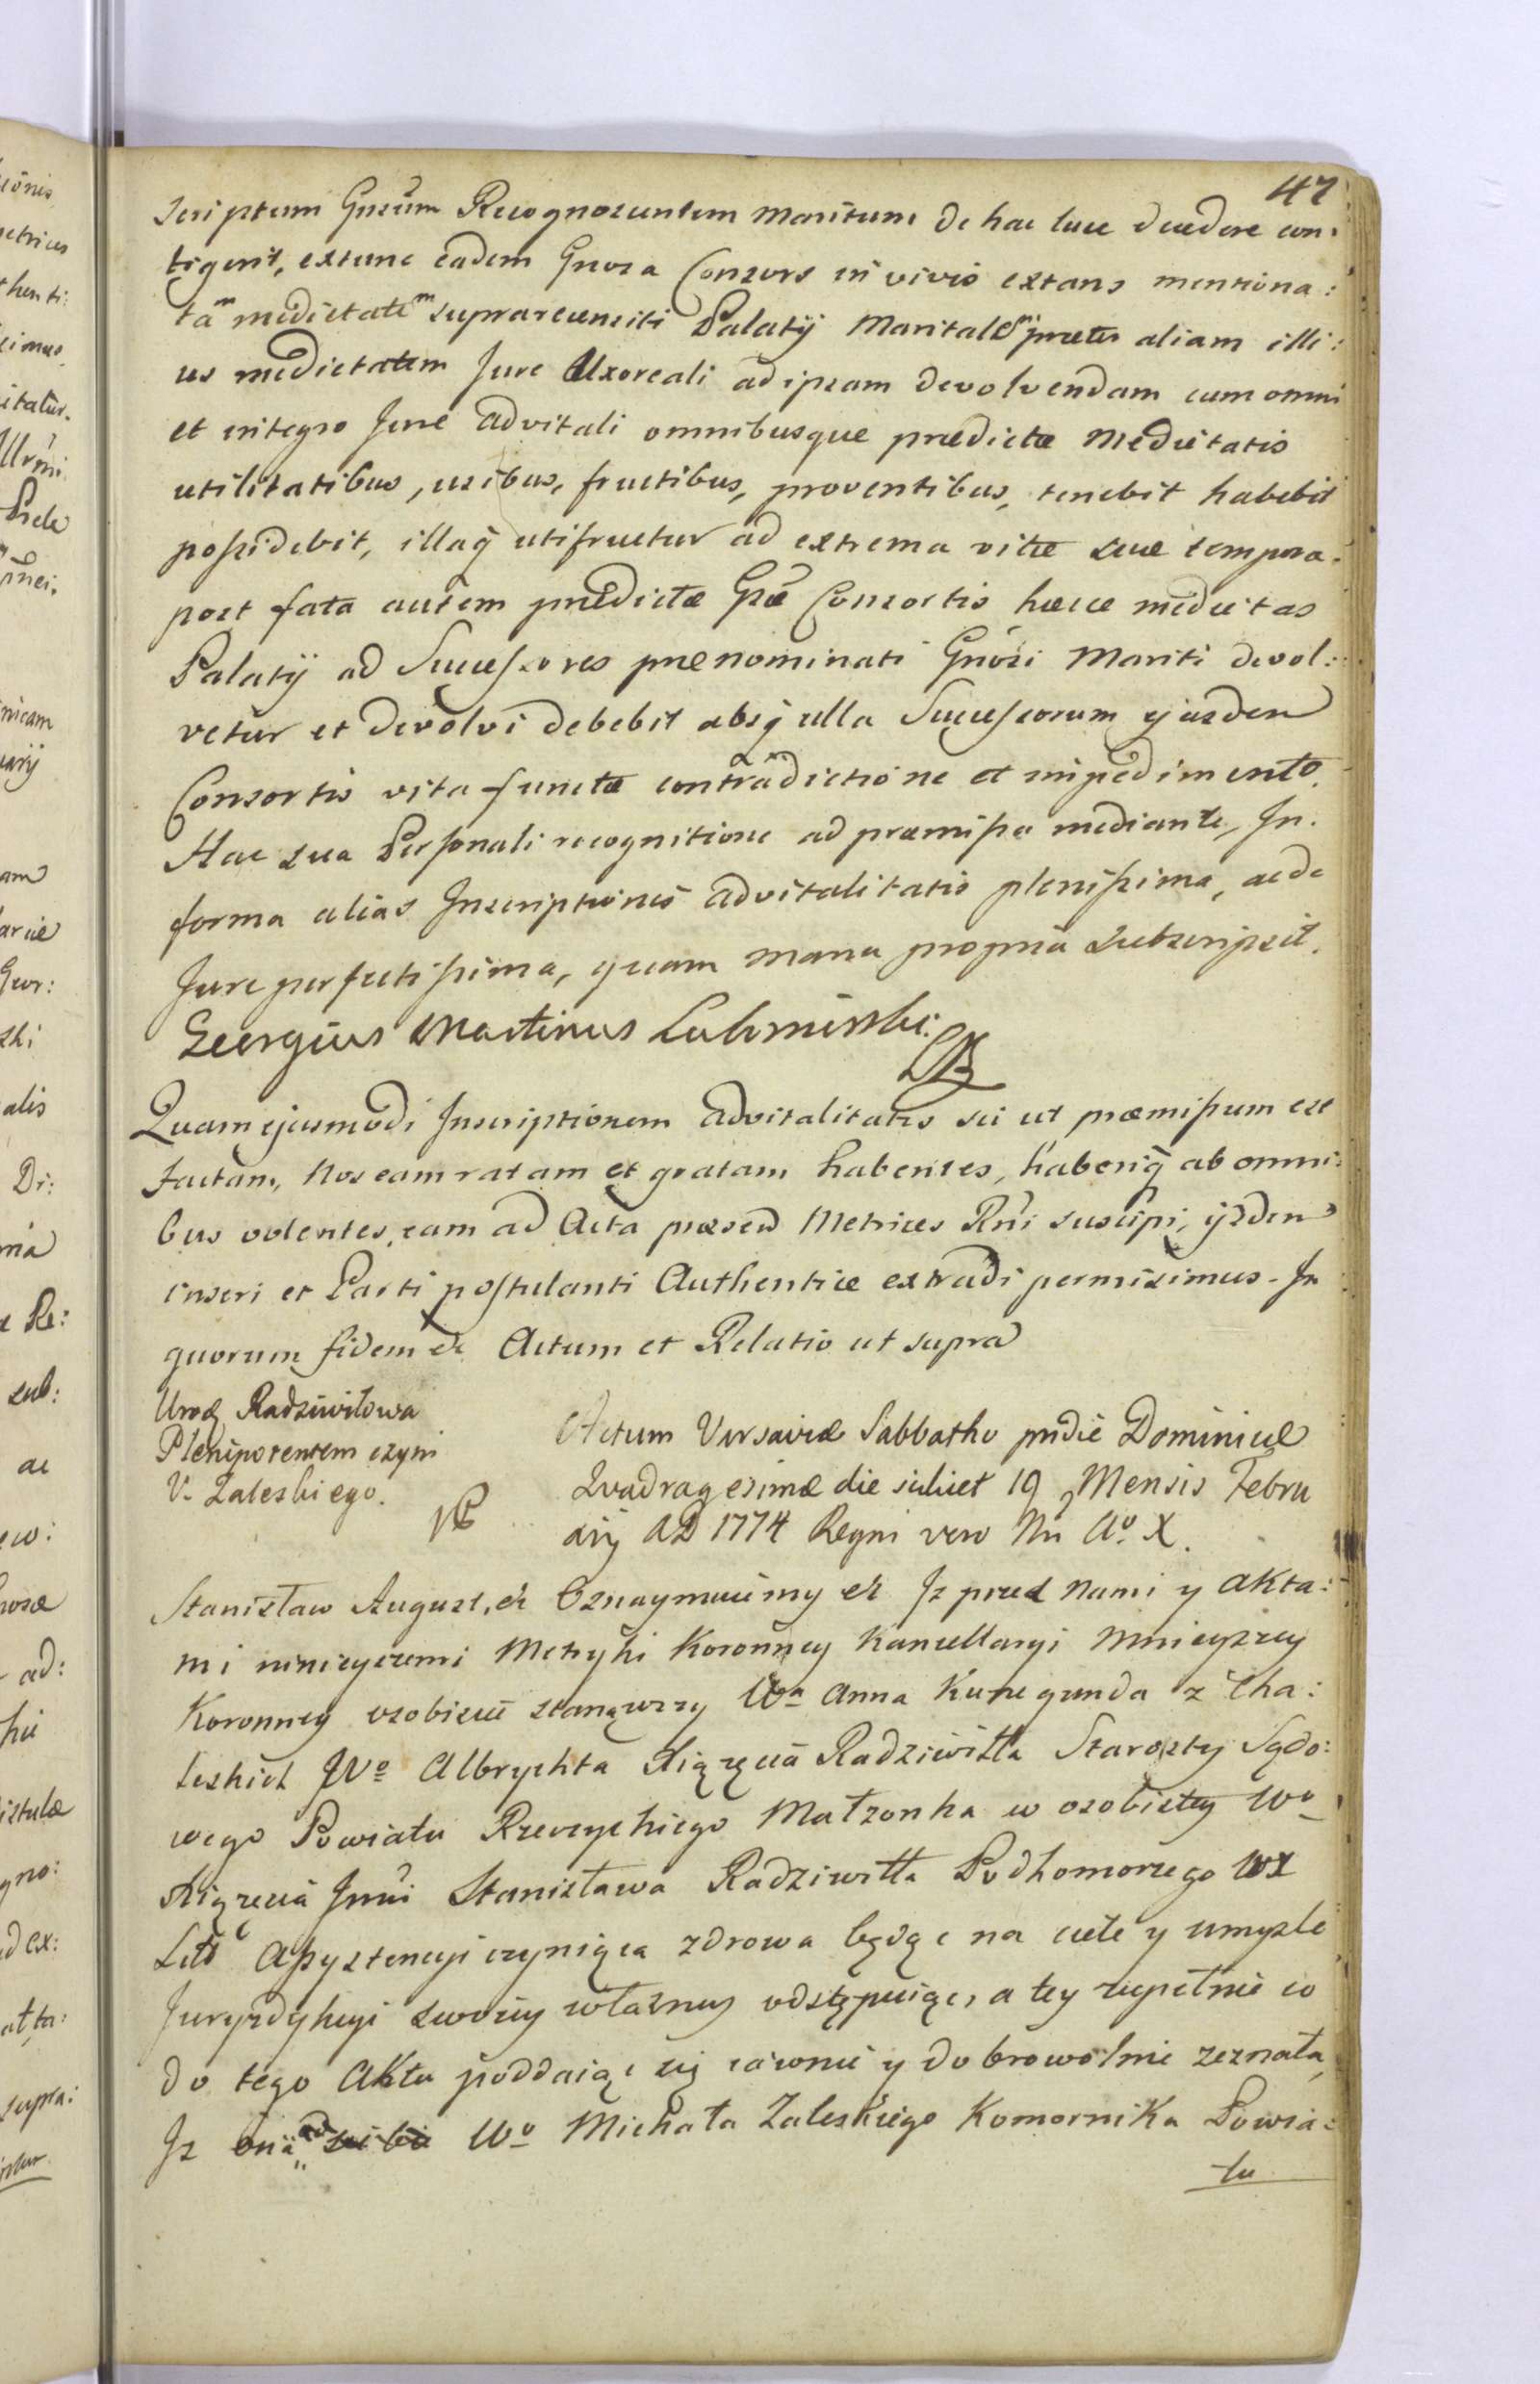 47
scriptum Gnsum Recognoscentem Maritum de hac luce decedere con:
tigerit, extunc eadem Gnosa Consors in vivis extans mentiona:
tam medietatem suprarecensiti Palatij Maritalem præter aliam illi:
us medietatem Jure Uxoreali ad ipsam devolvendam cum omni
et integro Jure advitali omnibusque prædictæ Medietatis
utilitatibus, usibus, fructibus, proventibus, tenebit habebit
possidebit, illaq̃ utifruetur ad extrema vitæ suæ tempora.
post fata autem prædictæ Gsæ Consortis hæcce medietas
Palatij ad Successores prænominati Gnosi Mariti devol:
vetur et devolvi debebit absq̃ ulla Successorum ejusdem
Consortis vita functæ contradictione et impedimento.
Hac sua Personali recognitione ad præmissa mediante, In
forma alias Inscriptionis advitalitatis plenissima, ac de
Jure perfectissima, quam manu propria subscripsit.
Georgius Martinus Lubminski:
Quam ejusmodi Inscriptionem advitalitatis sic ut præmissum est
factam, Nos eam ratam et gratam habentes, haberiq̃ ab omni:
bus volentes, eam ad Acta præsen Metrices Rni suscipi, ijsdem
inseri et Parti postulanti Authentice extradi permisimus. In
quorum fidem &. Actum et Relatio ut supra
Urod Radziwiłowa
Plenipotentem czyni
V. Zaleskiego.
Actum Varsaviæ Sabbatho pridie Dominicæ
Quadragesimæ die scilicet 19 Mensis Febru
arij AD 1774 Regni vero Nri Ao X.
Stanisław August, & Oznaymuiemy & Iz przed Nami y Akta:
mi ninieyszemi Metryki Koronney Kancellaryi Mnieyszey
Koronney osobiscie stanąwszy Wa Anna Kunegunda z Cha:
leskich JWo Albrychta Xiązęcia Radziwiłła Starosty Sądo:
wego Powiatu Rzeczyckiego Małzonka w osobistey Wo
Xiązęcia Jmci Stanisława Radziwiłła Podkomorzego WX
Litt Assystencyi czyniącą zdrowa będąc na ciele y umysle
Juryzdykcyi swoiey własney odstępuiąc, a tey zupełnie co
do tego Aktu poddaiąc się iawnie y dobrowolnie zeznała,
Iz Wo Michała Zaleskiego Komornika Powia:
tu